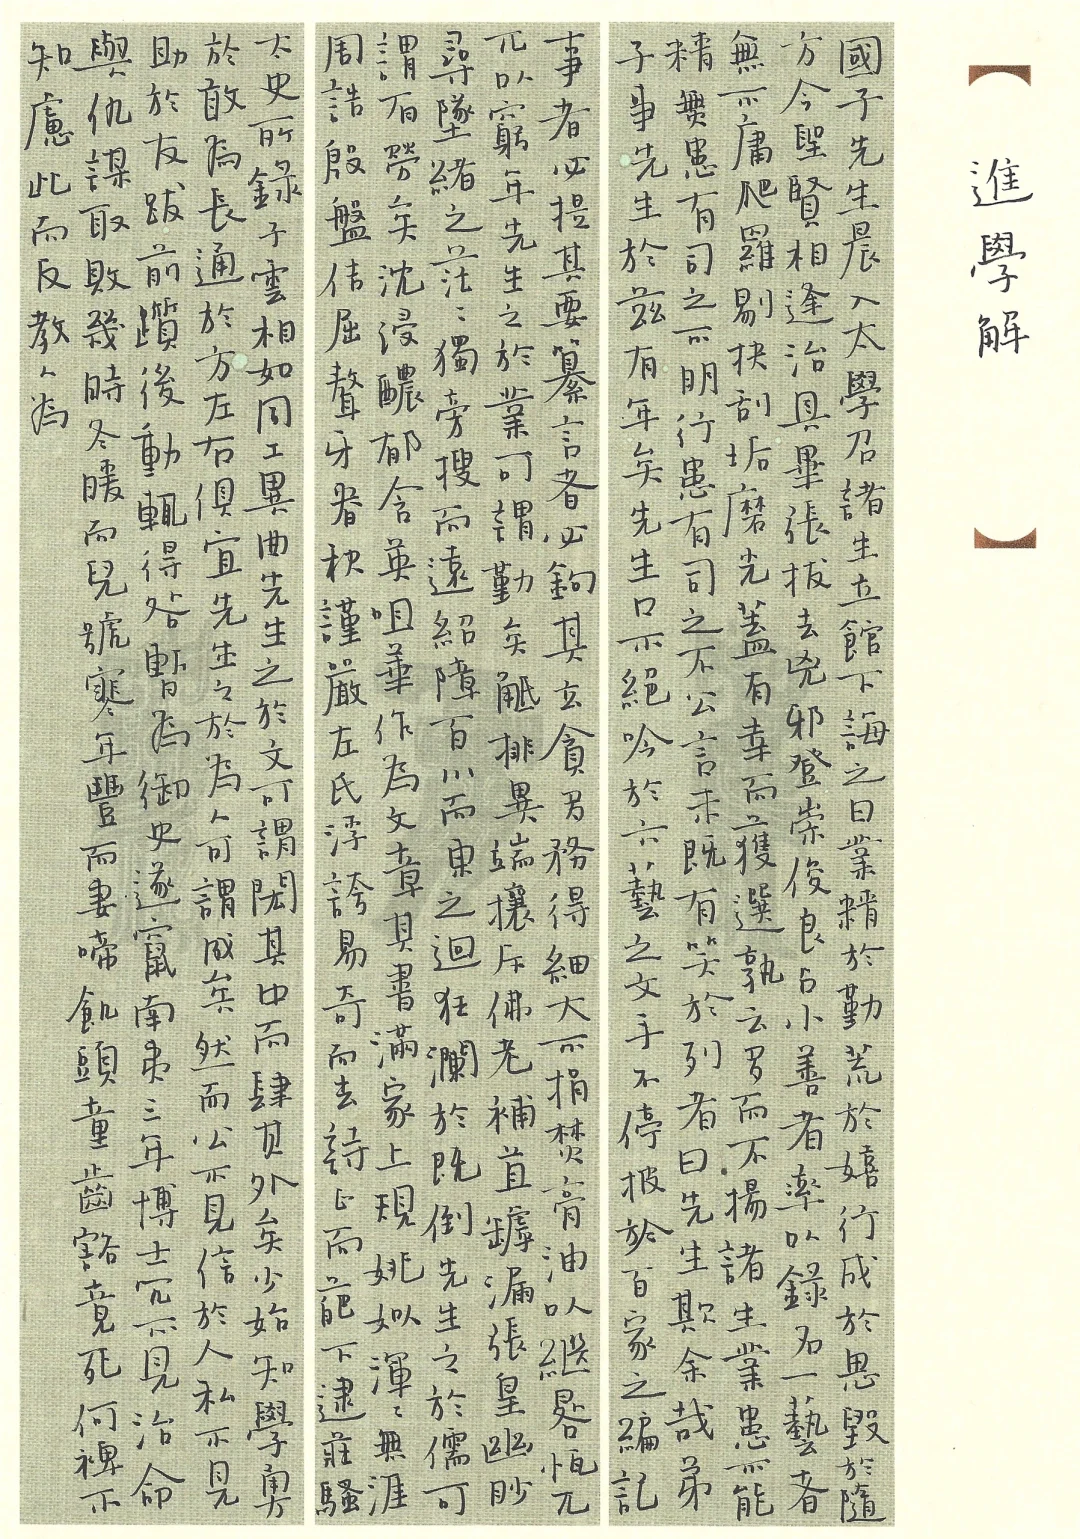 進學解
國子先生晨入太學召諸生立館下誨之曰業精於勤荒於嬉行成於思毀於隨
方今聖賢相逢治具畢張拔去兇邪登崇俊良占小善者率以錄名一藝者
無不庸爬羅剔抉刮垢磨光蓋有幸而獲選孰云多而不揚諸生業患不能
精無患有司之不明行患有司之不公言未既有笑於列者曰先生欺余哉弟
子事先生於茲有年矣先生口不絕吟於六藝之文手不停披於百家之編記
事者必提其要纂言者必鉤其玄貪多務得細大不捐焚膏油以繼晷恆兀
兀以窮年先生之於業可謂勤矣觝排異端攘斥佛老補苴罅漏張皇幽眇
尋墜緒之茫〻獨旁搜而遠紹障百川而東之迴狂瀾於既倒先生之於儒可
謂有勞矣沈浸醲郁含英咀華作為文章其書滿家上規姚姒渾〻無涯
周誥殷盤佶屈聱牙春秋謹嚴左氏浮誇易奇而法詩正而葩下逮莊騷
太史所錄子雲相如同工異曲先生之於文可謂閎其中而肆其外矣少始知學勇
於敢為長通於方左右俱宜先生之於為人可謂成矣然而公不見信於人私不見
助於友跋前躓後動輒得咎暫為御史遂竄南夷三年博士冗不見治命
與仇謀取敗幾時冬暖而兒號寒年豐而妻啼飢頭童齒豁竟死何裨不
知慮此而反教人為